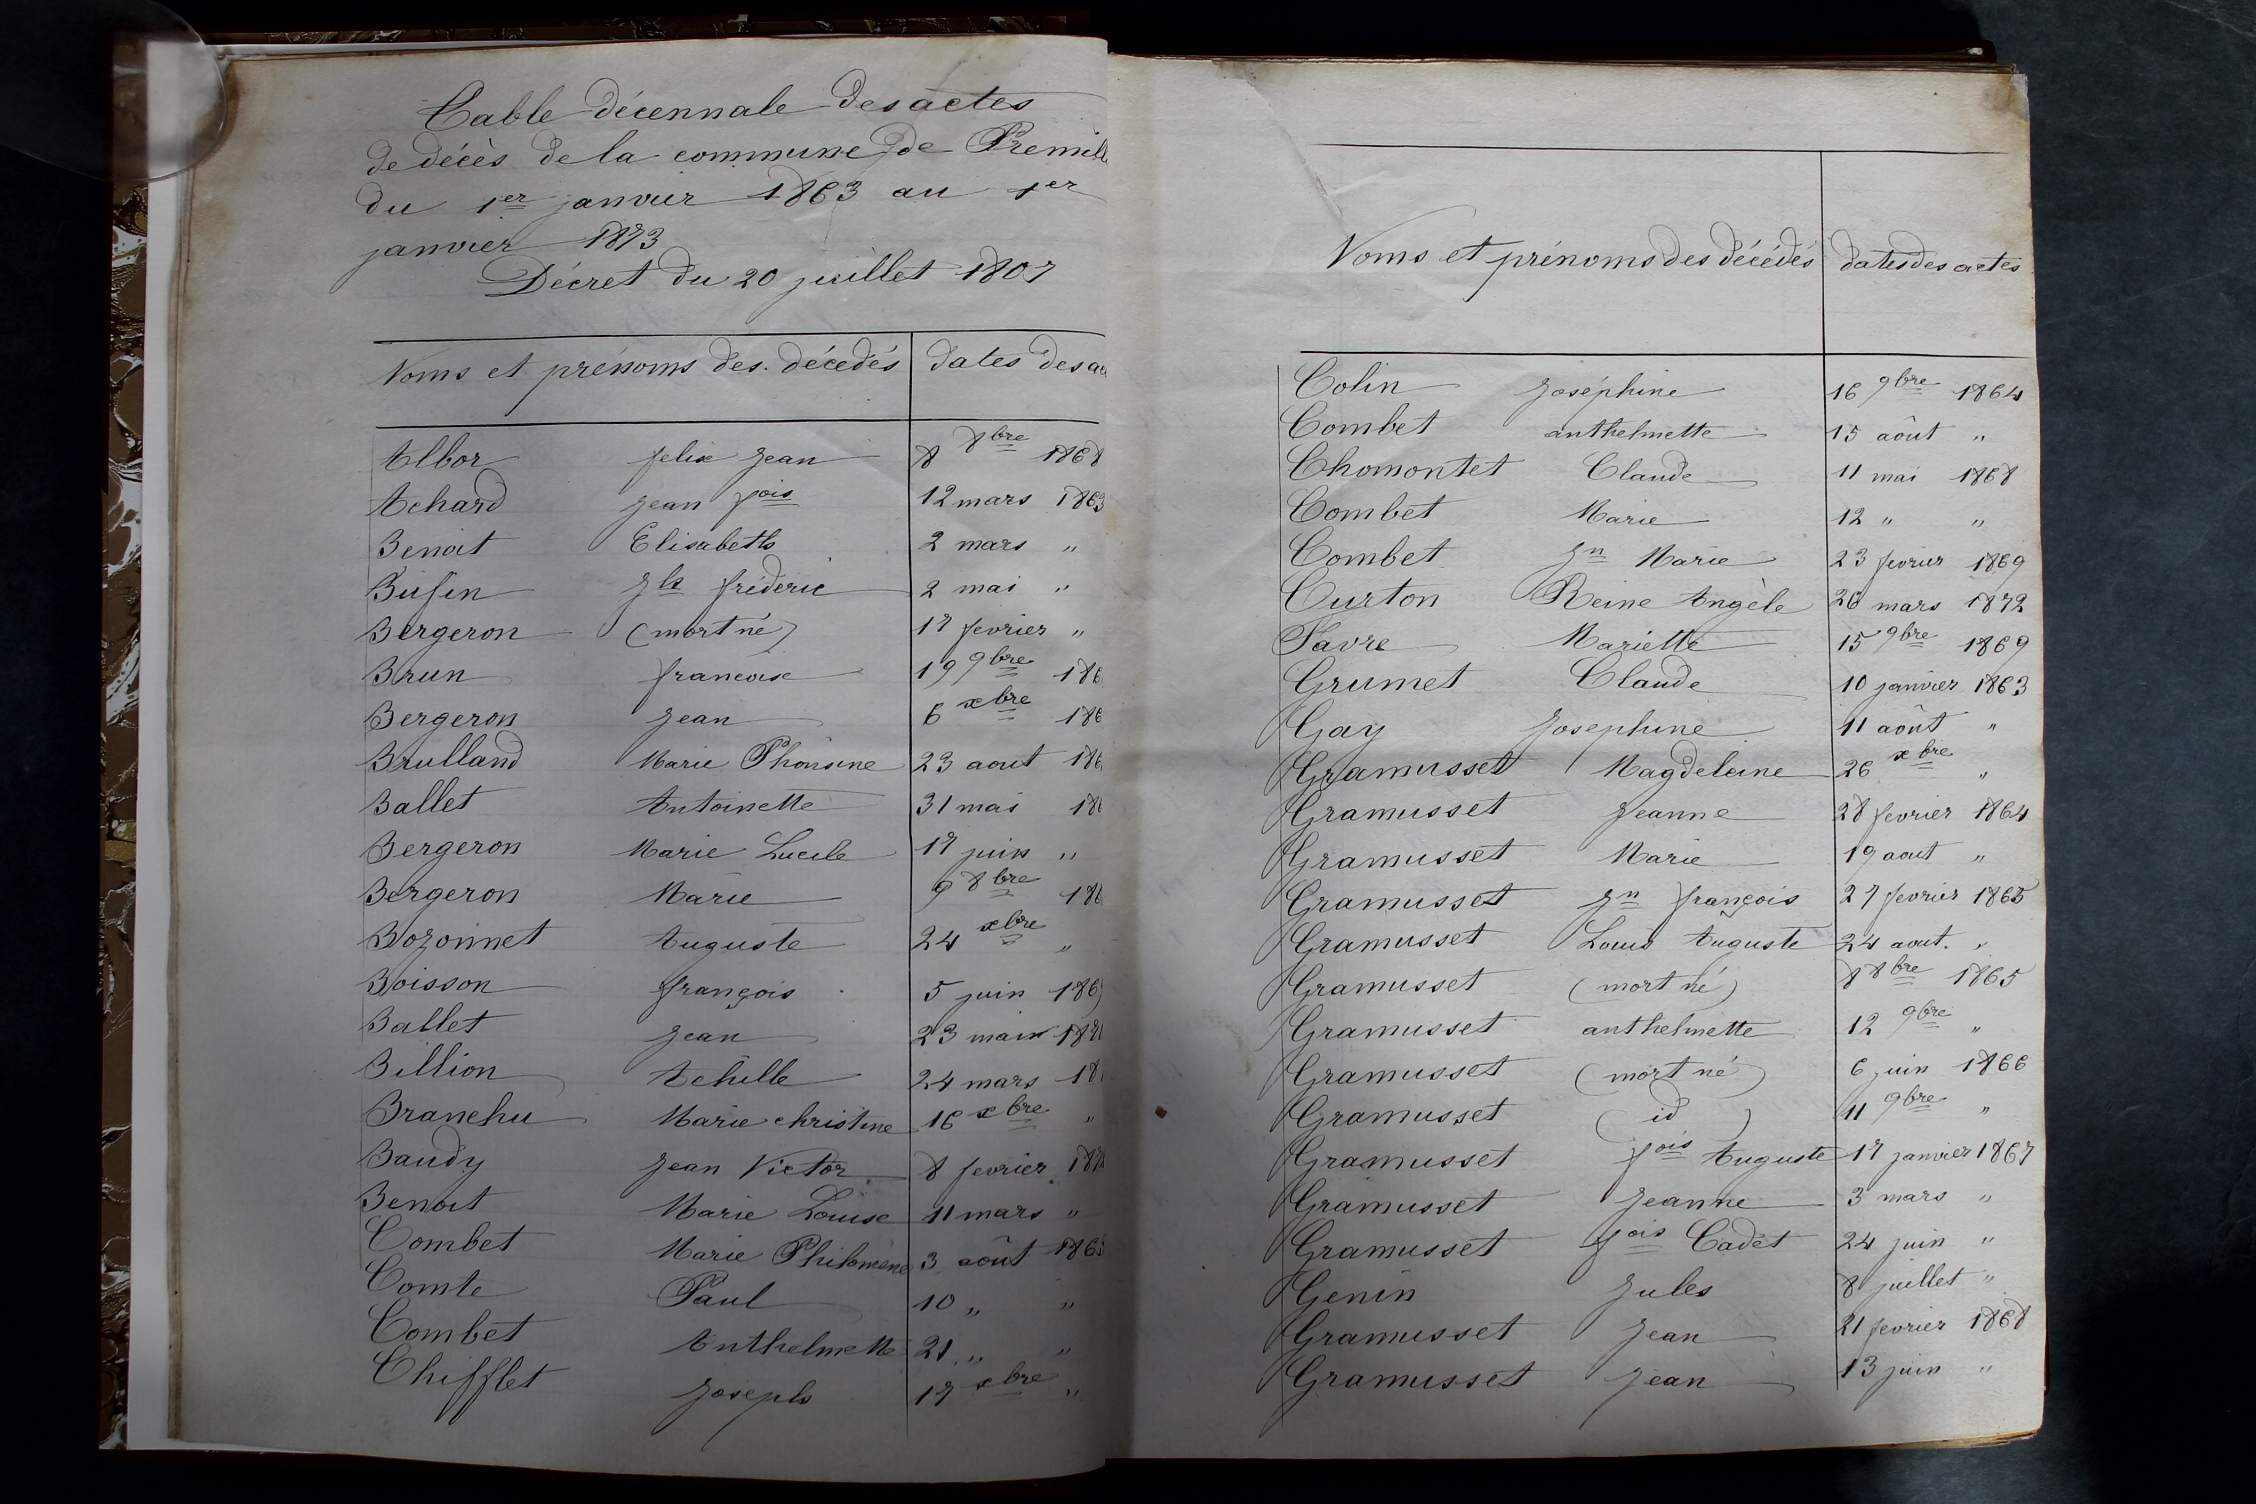 Table décennale des actes
de décès de la commune de Premill
du 1er janvier 1863 au 1er
janvier 1873
Décret du 20 juillet 1807
Noms et prénoms des décedés dates des ac
Albor felix Jean 8 8bre 1868
Achard Jean fois 12 mars 1863
Benoit Elisabeth 2 mars "
Jh fréderic 2 mai "
Bergeron (mort né) 17 fevrier "
Brun francoise 19 9bre 186
Bergeron Jean 6 xbre 186
Brulland Marie Phonsine 23 aout 186
Ballet Antoinette 31 mai 18
Bergeron Marie Lucile 17 juin "
Bergeron Marie 9 8bre 186
Bozonnet Auguste 24 xbre "
Boisson françois 5 juin 186
Ballet Jean 23 187
Billion Achille 24 mars 18
Branchu Marie christine 16 xbre "
Baudy Jean Victor 8 fevrier 187
Benoit Marie Louise 11 mars "
Combet Marie Philomène 3 août 186
Comte Paul 10 " "
Combet Anthelmette 21 " "
Chifflet Joseph 17 xbre "
Noms et prénoms des décédés dates des actes
Colin Joséphine 16 9bre 1864
Combet anthelmette 15 aôut "
Chomontet Claude 11 mai 1868
Combet Marie 12 " "
Combet Jn Marie 23 fevrier 1869
Curton Reine Angèle 26 mars 1872
Favre Mariette 15 9bre 1869
Grumet Claude 10 janvier 1863
Gay Josephine 11 août "
Gramusset Magdeleine 26 xbre "
Gramusset Jeanne 28 fevrier 1864
Gramusset Marie 19 aout "
Gramusset Jn françois 27 fevrier 1865
Gramusset Louis Auguste 24 aout. "
Gramusset (mort né) 8 8bre 1865
Gramusset anthelmette 12 9bre "
Gramusset (mort né) 6 juin 1866
Gramusset (id) 11 9bre "
Gramusset fois Auguste 17 janvier 1867
Gramusset Jeanne 3 mars "
Gramusset fois Cadet 24 juin "
Genin Jules 8 juillet "
Gramusset Jean 21 fevrier 1868
Gramusset Jean 13 juin "